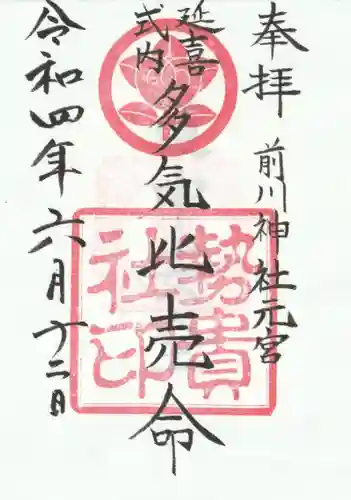 奉拝
前川神社元宮
延喜
式内
多気比売命
令和四年六月十二日
勢貴
社印